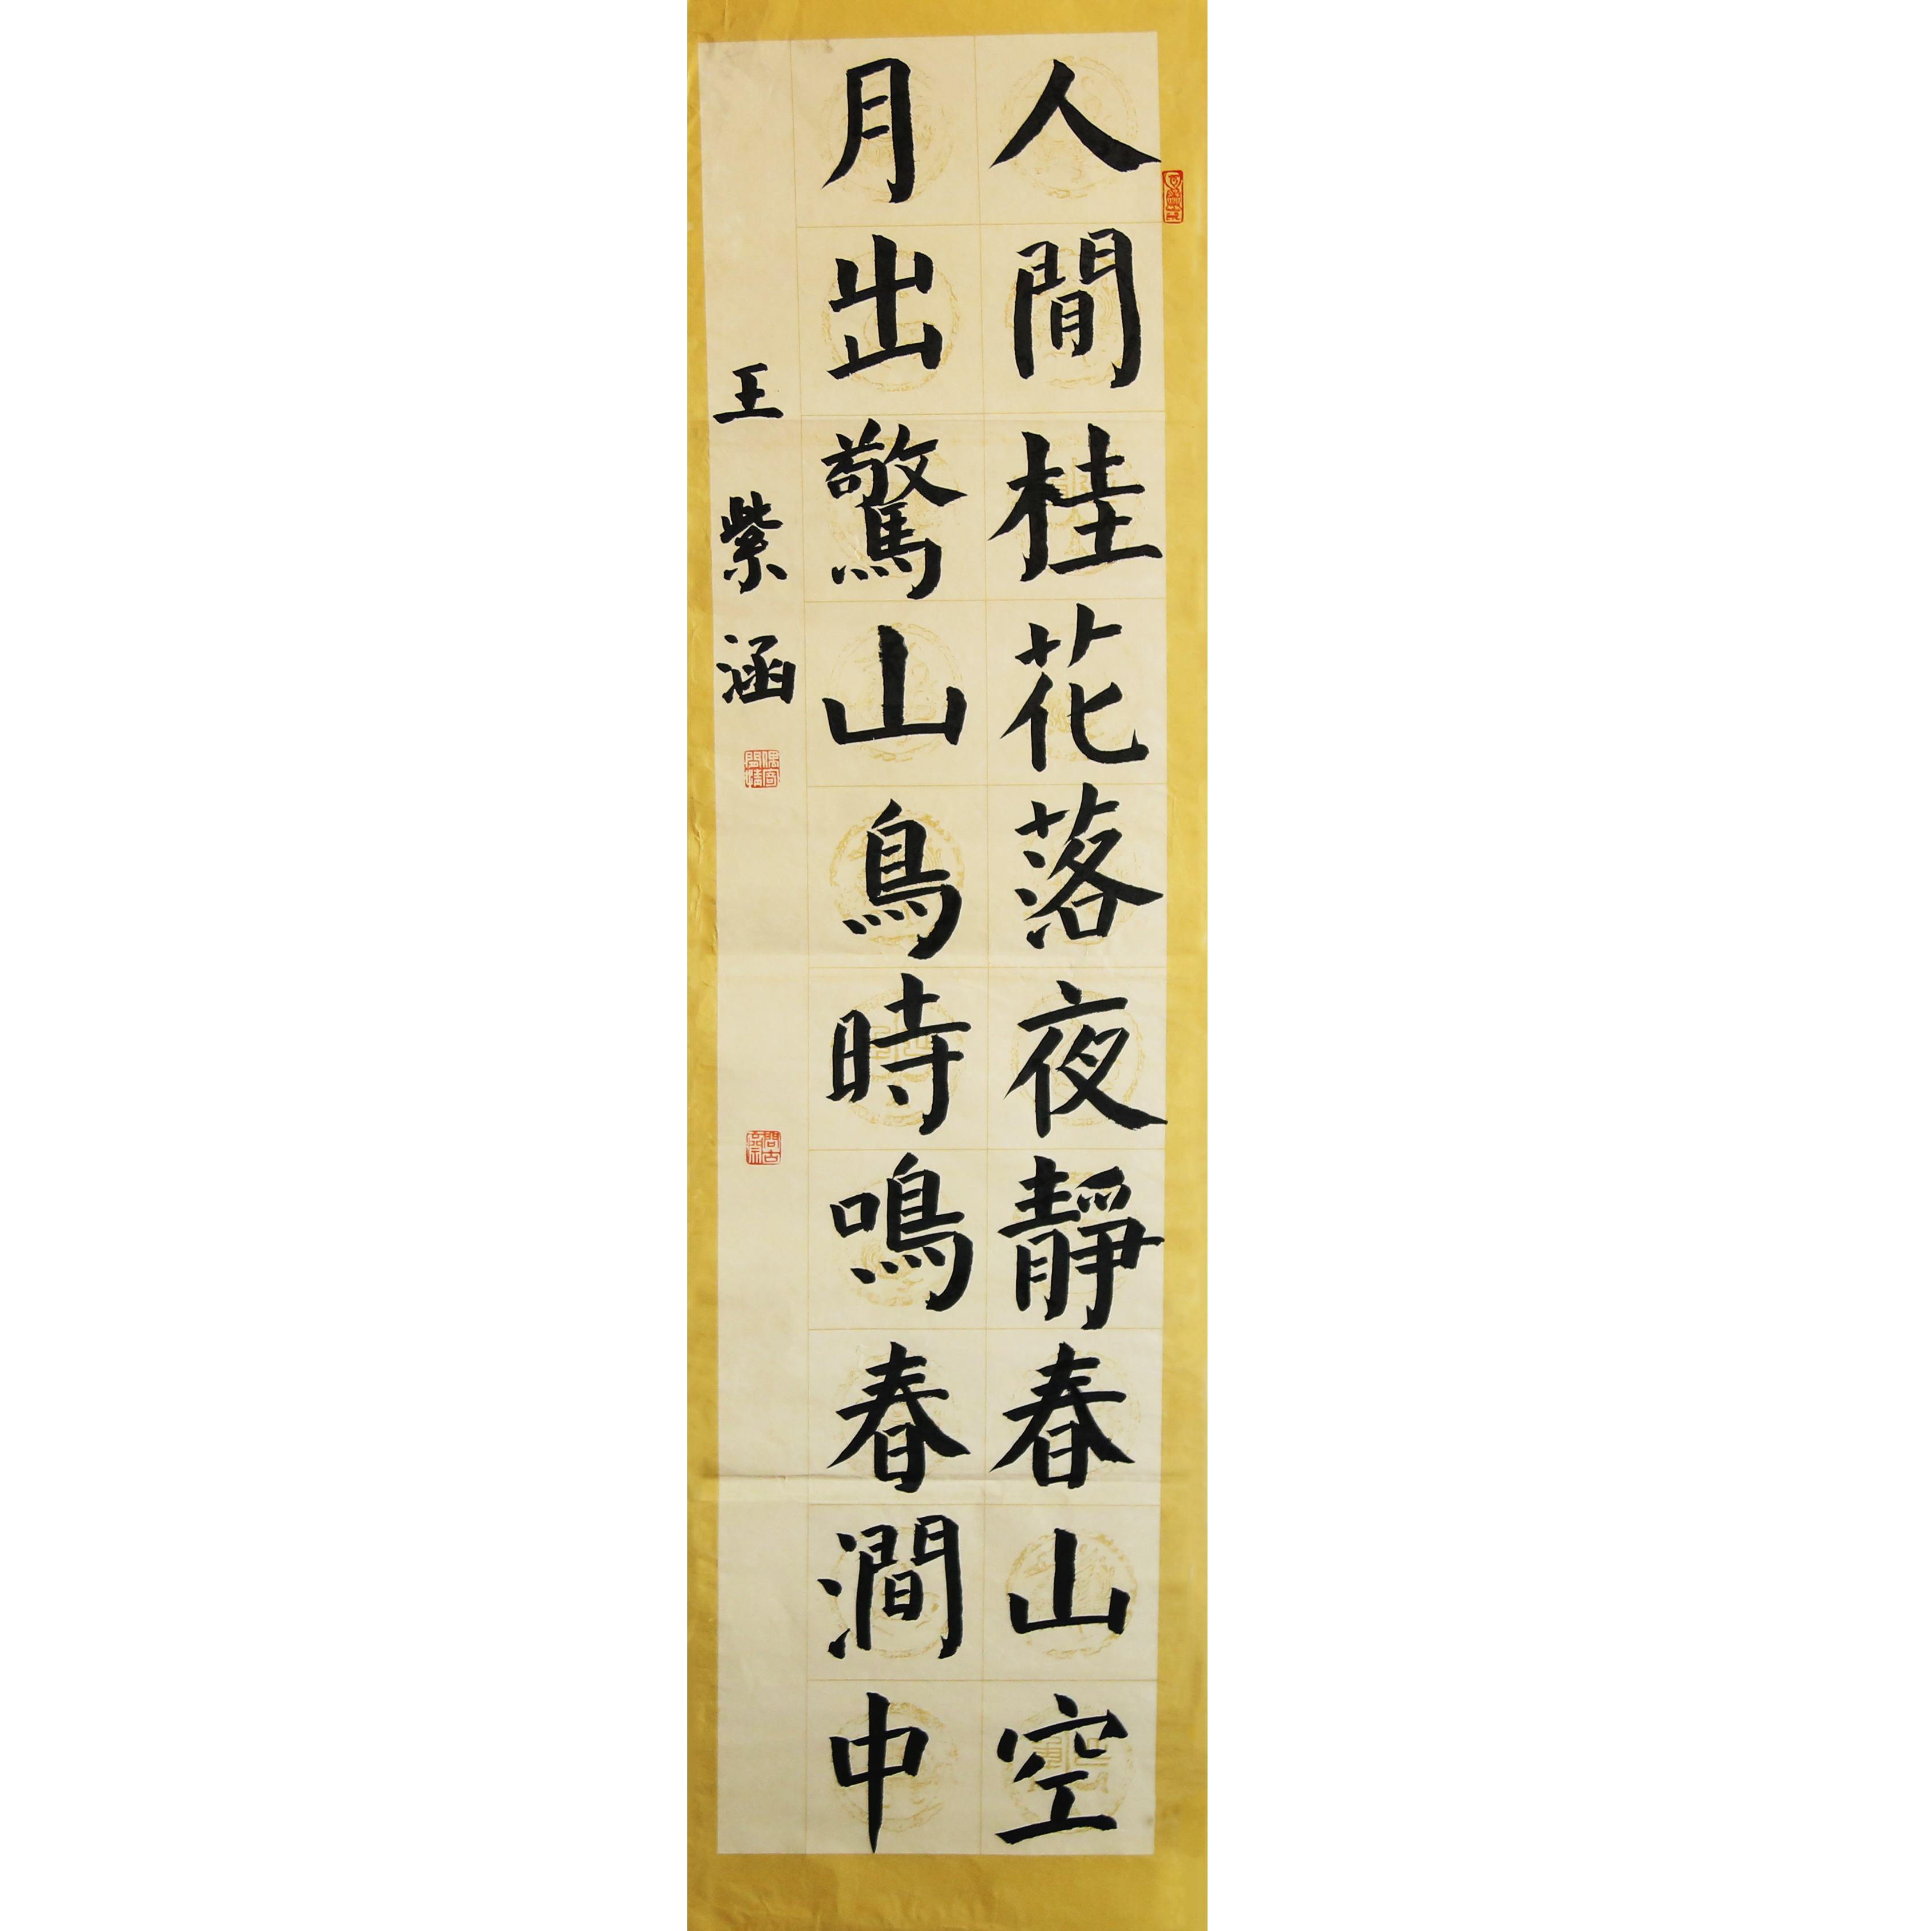 人間桂花落夜靜春山空
月出驚山鳥時鳴春澗中
王紫涵